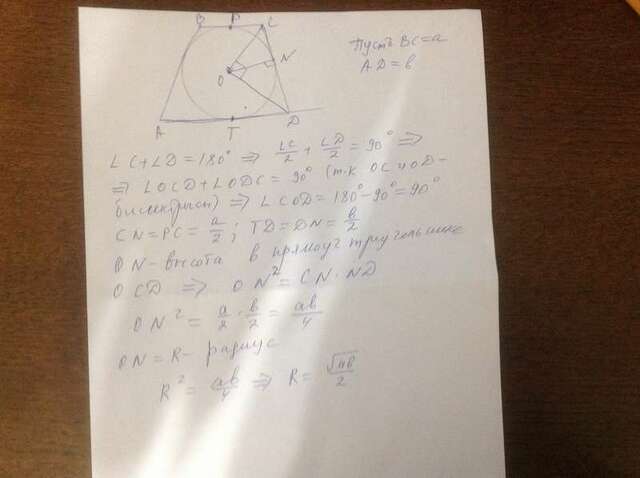 B P C
Пусть BC = a
AD = b
N
O
A T D
∠C + ∠D = 180° ⇒ ∠C/2 + ∠D/2 = 90° ⇒
⇒ ∠OCD + ∠ODC = 90° (т.к. OC и OD –
биссектрисы) ⇒ ∠COD = 180° – 90° = 90°
CN = PC = a/2 ; TD = DN = b/2
ON – высота в прямоуг треугольнике
OCD ⇒ ON² = CN · ND
ON² = a/2 · b/2 = ab/4
ON = R – радиус
R² = ab/4 ⇒ R = √ab/2